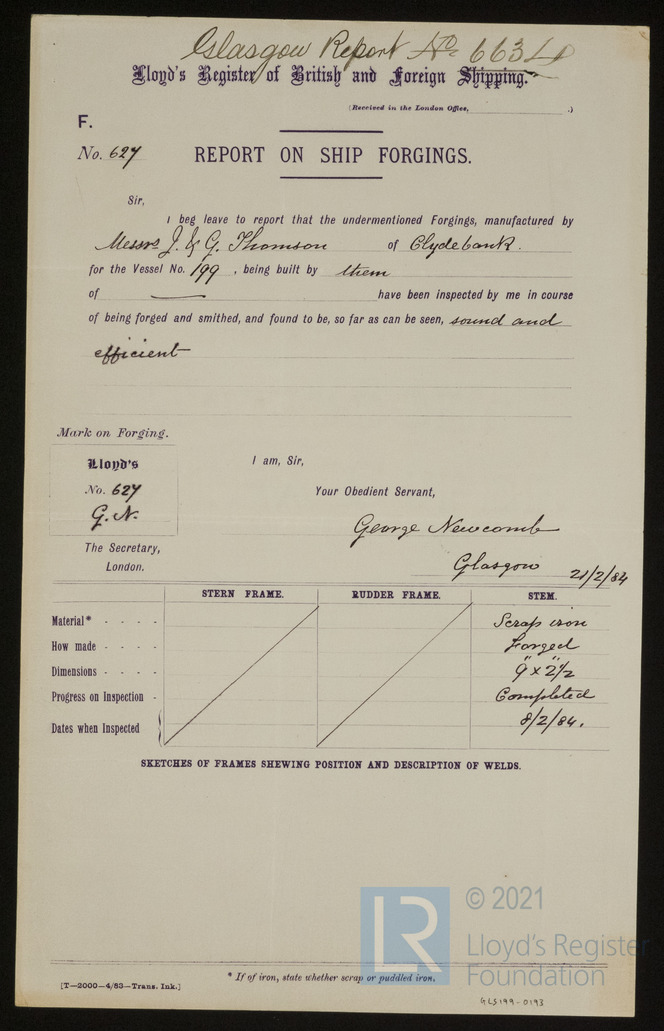 Glasgow Report No 6634
Lloyd's Register of British and Foreign Shipping.
(Received in the London Office, .)
F.
No. 627 REPORT ON SHIP FORGINGS.
Sir,
I beg leave to report that the undermentioned Forgings, manufactured by
Messrs J. & G. Thomson of Clydebank.
for the Vessel No. 199 , being built by them
of have been inspected by me in course
of being forged and smithed, and found to be, so far as can be seen, sound and
efficient
Mark on Forging.
Lloyd's
No. 627
G. N.
I am, Sir,
Your Obedient Servant,
George Newcomb
The Secretary,
London.
Glasgow 21/2/84
STERN FRAME. RUDDER FRAME. STEM.
Material* - - - - Scrap iron
How made - - - - Forged
Dimensions - - - - 9" x 2"1/2
Progress on Inspection - Completed
Dates when Inspected 8/2/84.
SKETCHES OF FRAMES SHEWING POSITION AND DESCRIPTION OF WELDS.
© 2021
LR
Lloyd's Register
Foundation
* If of iron, state whether scrap or puddled iron.
[T—2000—4/83—Trans. Ink.]
GLS199-0193